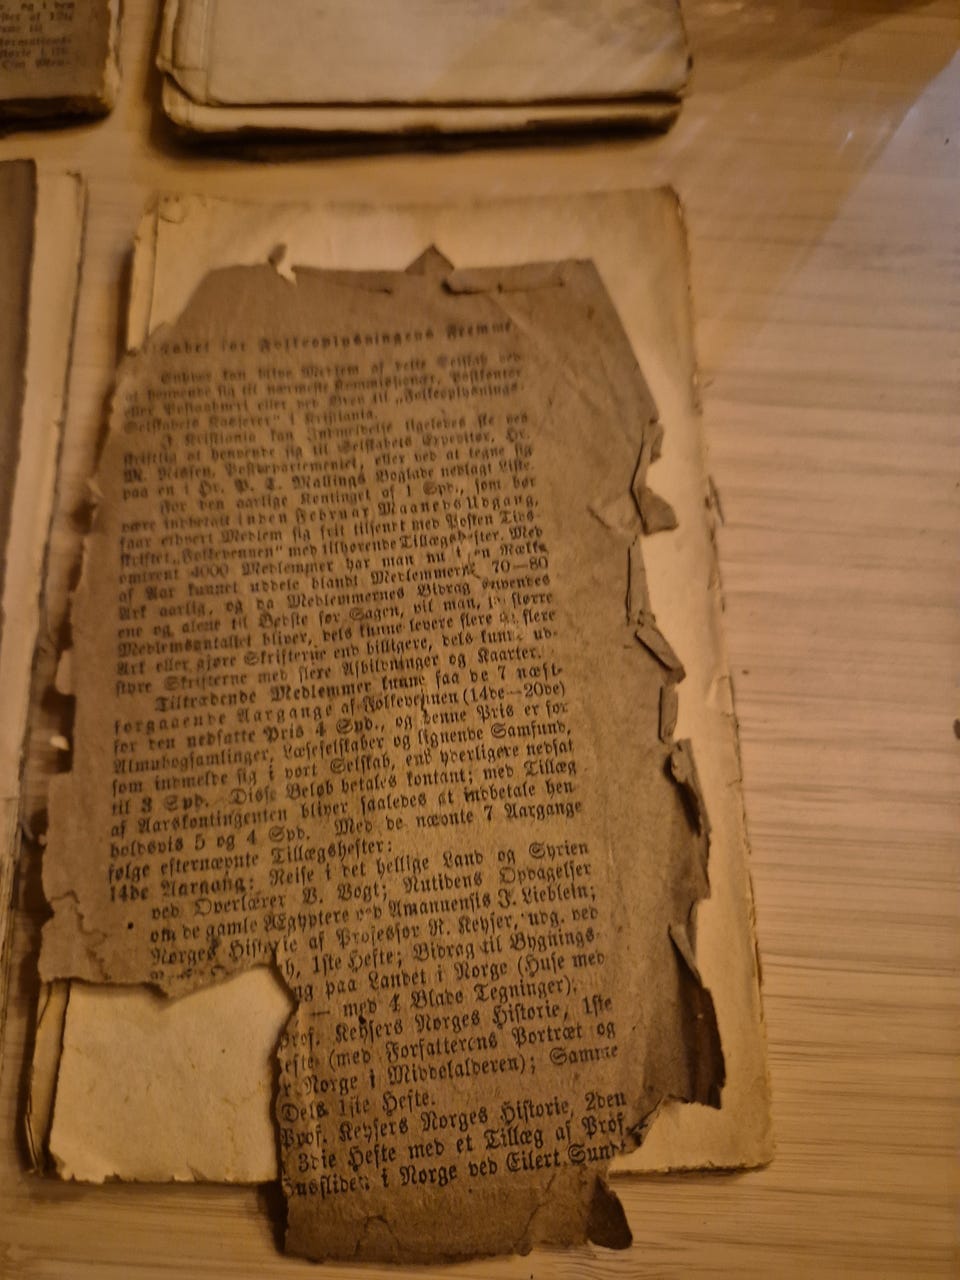 for Folkeoplysningens Fremme
Enhver kan blive Medlem af dette Selskab ved
at henvende sig til nærmeste Kommissionær, Postkontor
eller Postaabneri eller ved Brev til „Folkeoplysnings-
Selskabets Kasserer" i Kristiania.
I Kristiania kan Indmeldelse ligeledes ske ved
skriftlig at henvende sig til Selskabets Expeditør, Hr.
M. Nissen, Postdepartementet, eller ved at tegne sig
paa en i Hr. P. T. Mallings Boglade nedlagt Liste.
For den aarlige Kontinget af 1 Spd., som bør
være indbetalt inden Februar Maaneds Udgang,
faar ethvert Medlem sig frit tilsendt med Posten Tids-
skriftet „Folkevennen" med tilhørende Tillægshefter. Med
omtrent 4000 Medlemmer har man nu i en Række
af Aar kunnet uddele blandt Medlemmerne 70—80
Ark aarlig, og da Medlemmernes Bidrag anvendes
ene og alene til Bedste for Sagen, vil man, jo større
Medlemsantallet bliver, dels kunne levere flere og flere
Ark eller gjøre Skrifterne end billigere, dels kunne ud-
styre Skrifterne med flere Afbildninger og Kaarter.
Tiltrædende Medlemmer kunne faa de 7 næst-
forgaaende Aargange af Folkevennen (14de—20de)
for den nedsatte Pris 4 Spd., og denne Pris er for
Almubogsamlinger, Læseselskaber og lignende Samfund,
som indmelde sig i vort Selskab, end yderligere nedsat
til 3 Spd. Disse Beløb betales kontant; med Tillæg
af Aarskontingenten bliver saaledes at indbetale hen-
holdsvis 5 og 4 Spd. Med de nævnte 7 Aargange
følge efternævnte Tillægshefter:
14de Aargang: Reise i det hellige Land og Syrien
ved Overlærer V. Vogt; Nutidens Opdagelser
om de gamle Ægyptere ved Amanuensis J. Lieblein;
Norges Historie af Professor R. Keyser, udg. ved
1ste Hefte; Bidrag til Bygnings-
paa Landet i Norge (Huse med
— med 4 Blade Tegninger).
Prof. Keysers Norges Historie, 1ste
Hefte (med Forfatterens Portræt og
Norge i Middelalderen); Samme
Dels 1ste Hefte.
Prof. Keysers Norges Historie, 2den
3die Hefte med et Tillæg af Prof.
Husfliden i Norge ved Eilert Sundt